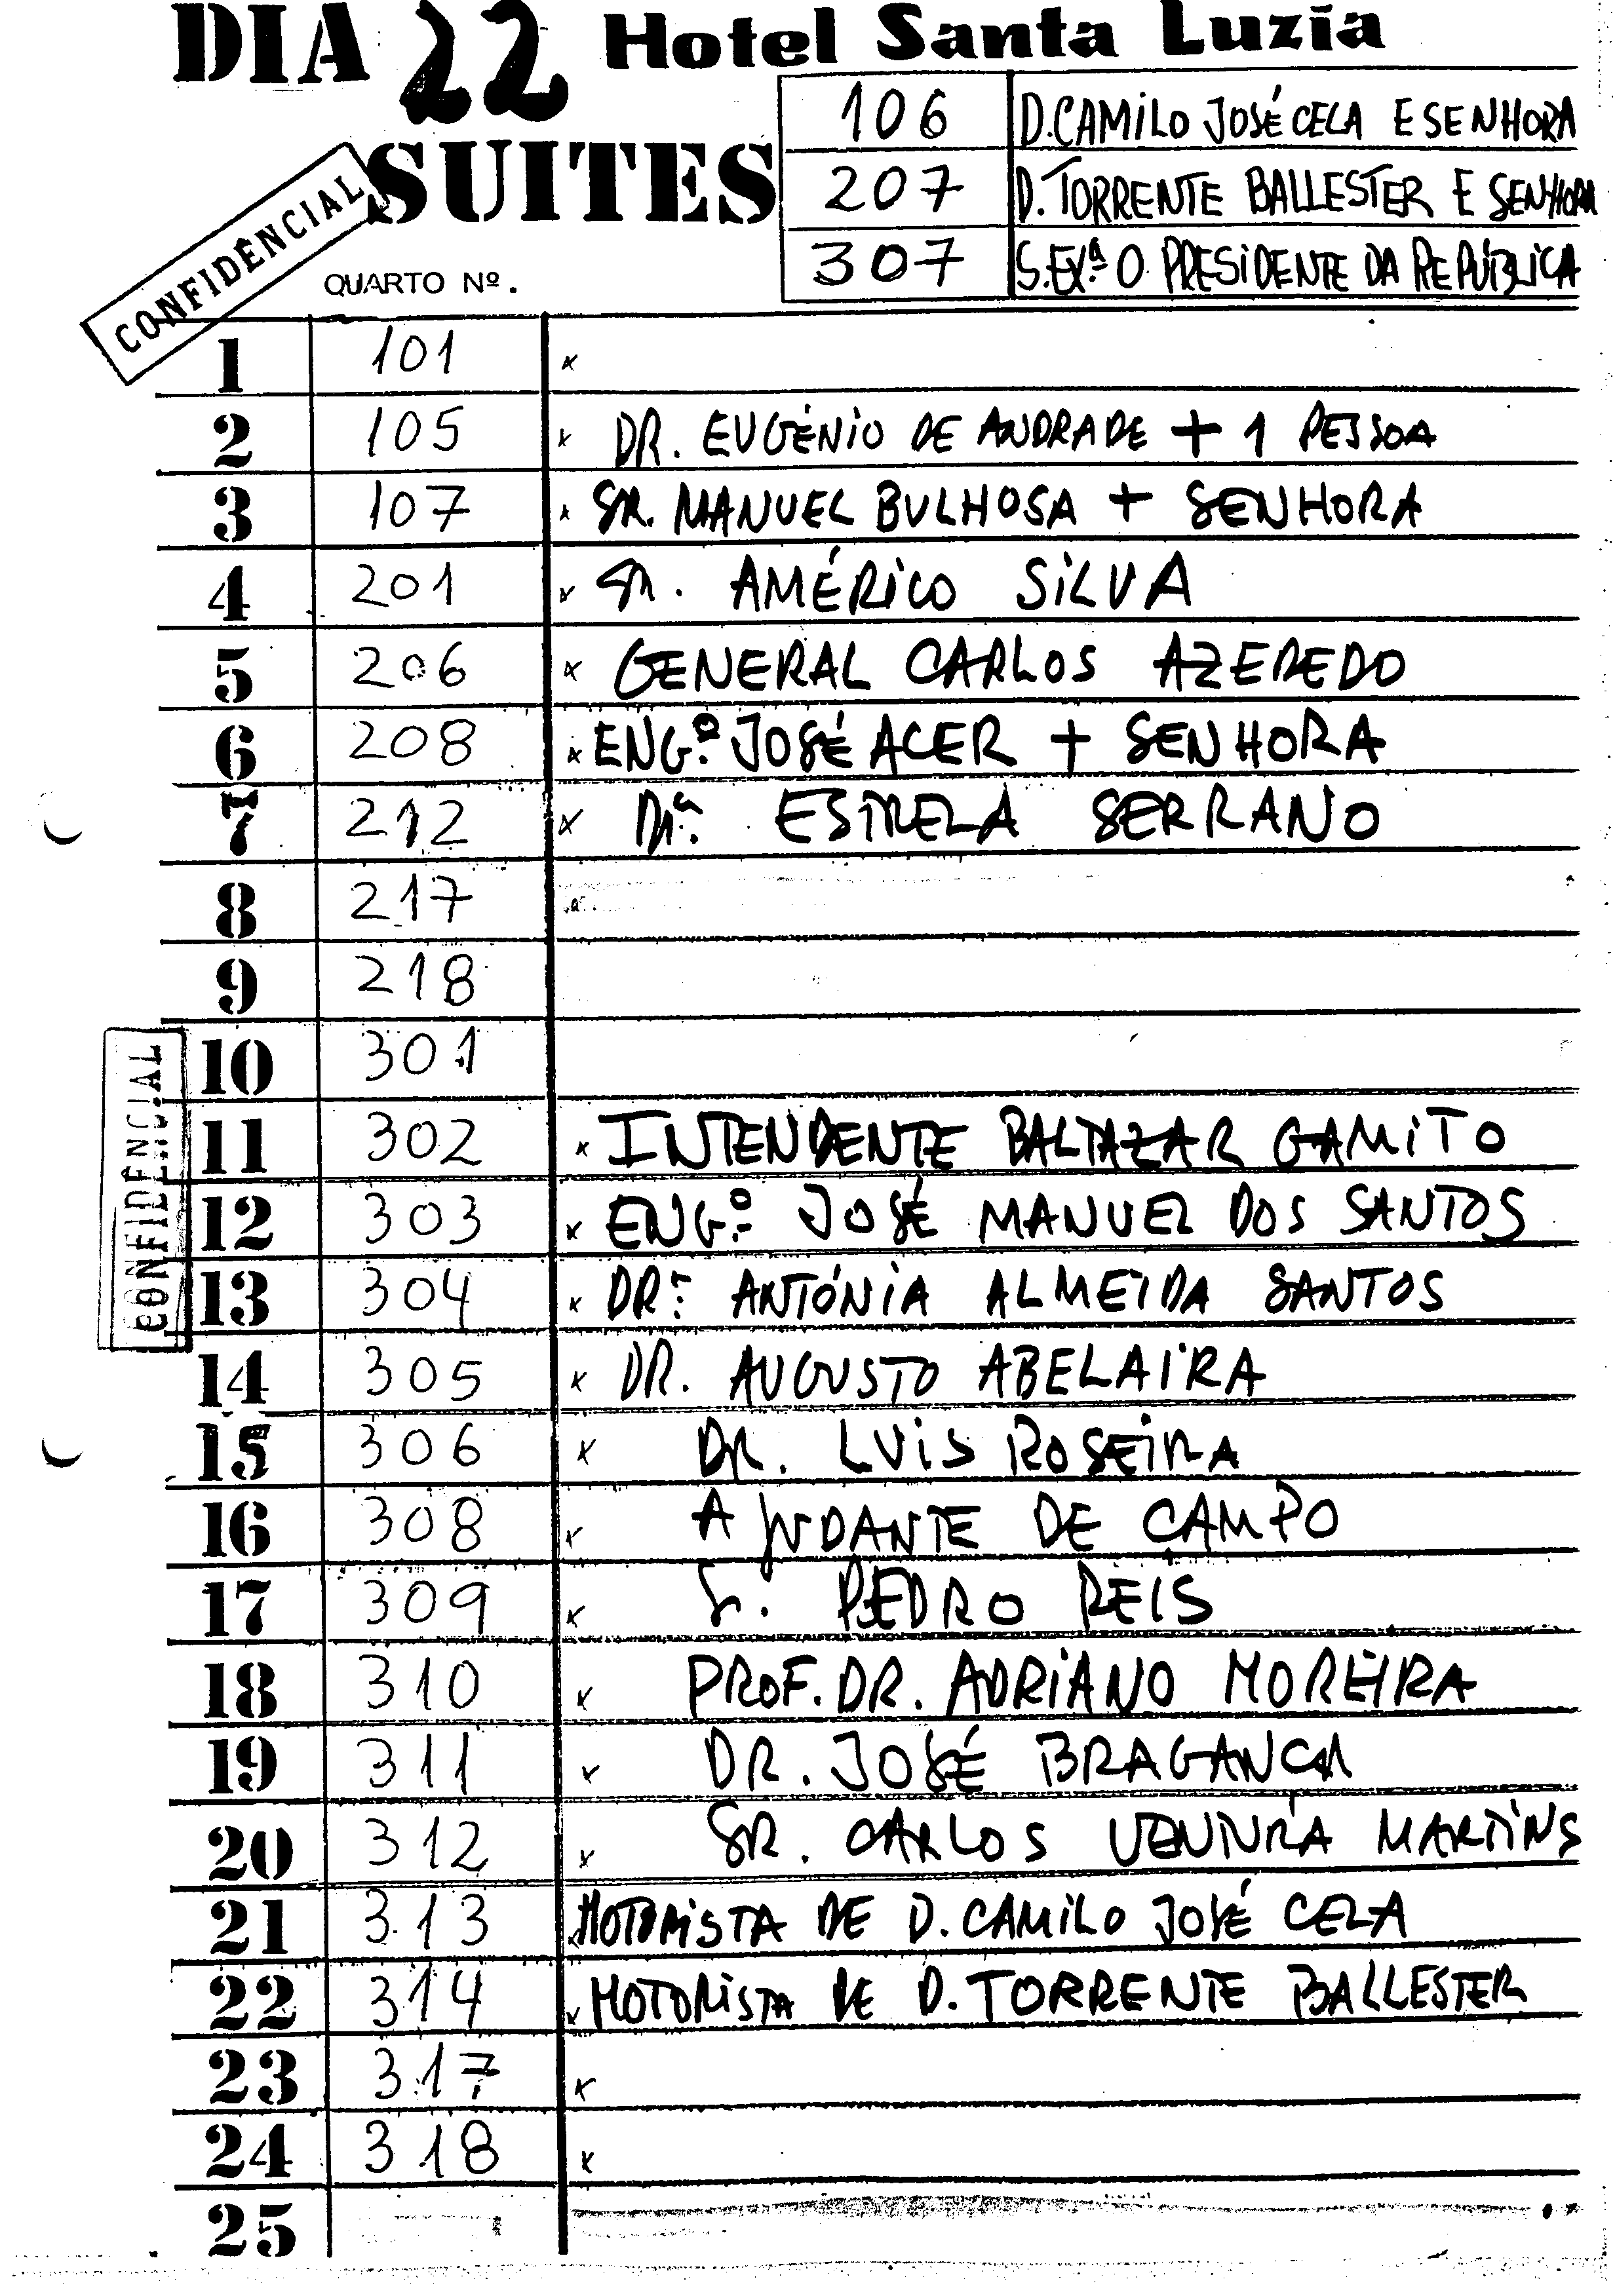 DIA 22 Hotel Santa Luzia
SUITES
106 D. CAMILO JOSÉ CELA E SENHORA
207 D. TORRENTE BALLESTER E SENHORA
307 S. EXª O PRESIDENTE DA REPÚBLICA
CONFIDÊNCIAL
QUARTO Nº.
1 101 x
2 105 x DR. EUGÉNIO DE ANDRADE + 1 PESSOA
3 107 x SR. MANUEL BULHOSA + SENHORA
4 201 x Sr. AMÉRICO SILVA
5 206 x GENERAL CARLOS AZEREDO
6 208 x ENGº JOSÉ ACER + SENHORA
7 212 x Drª. ESTRELA SERRANO
8 217
9 218
10 301
CONFIDÊNCIAL
11 302 x INTENDENTE BALTAZAR GAMITO
12 303 x ENGº. JOSÉ MANUEL DOS SANTOS
13 304 x DRª. ANTÓNIA ALMEIDA SANTOS
14 305 x DR. AUGUSTO ABELAIRA
15 306 x DR. LUIS ROSEIRA
16 308 x AJUDANTE DE CAMPO
17 309 x Sr. PEDRO REIS
18 310 x PROF. DR. ADRIANO MOREIRA
19 311 x DR. JOSÉ BRAGANCA
20 312 x SR. CARLOS VENTURA MARTINS
21 313 MOTORISTA DE D. CAMILO JOSÉ CELA
22 314 x MOTORISTA DE D. TORRENTE BALLESTER
23 317 x
24 318 x
25